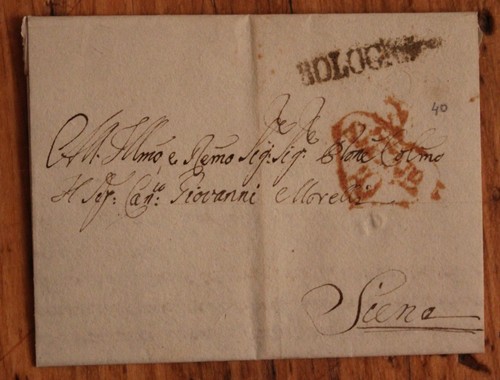 BOLOGNA
40
All Illmo, e Rmo Sigr: Sigr: Pne Colmo
Il Sigr: Canco Giovanni Morelli
Siena